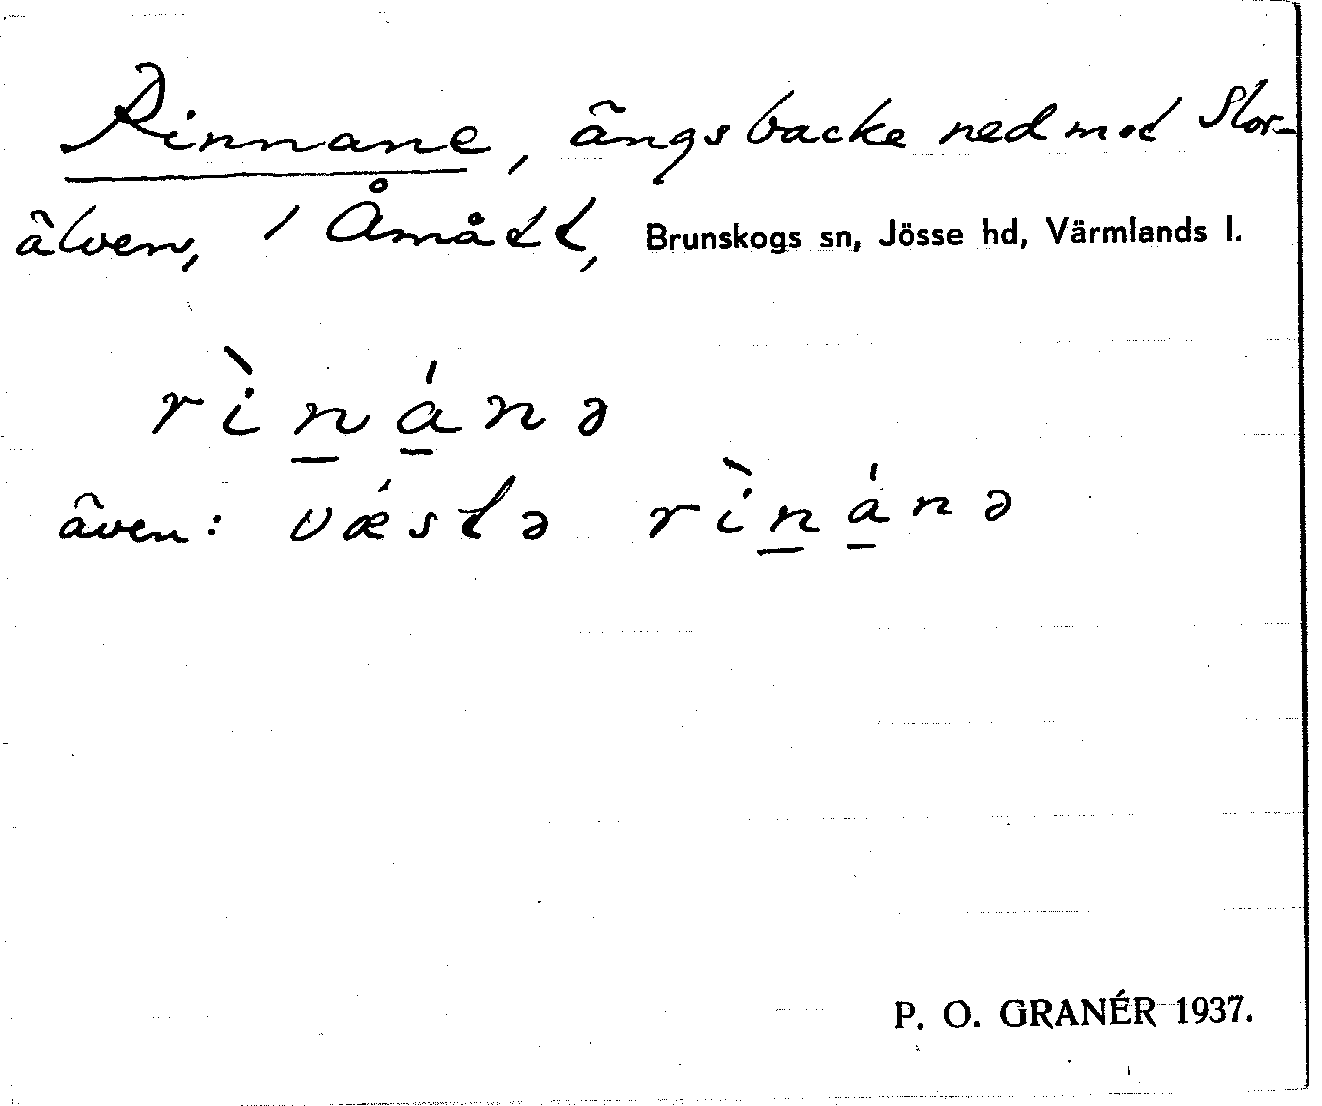 Rinnane, ängsbacke ned mot Stor-
älven, i Åmått, Brunskogs sn, Jösse hd, Värmlands l.
rìṉá̱nə
även: vǽstə rìṉá̱nə
P. O. GRANÉR 1937.